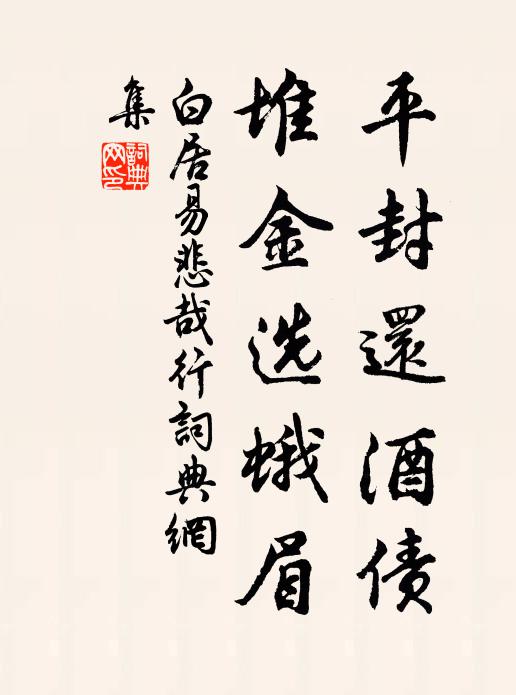 平封還酒债
堆金选蛾眉
白居易悲哉行詞典網
集
詞典网印